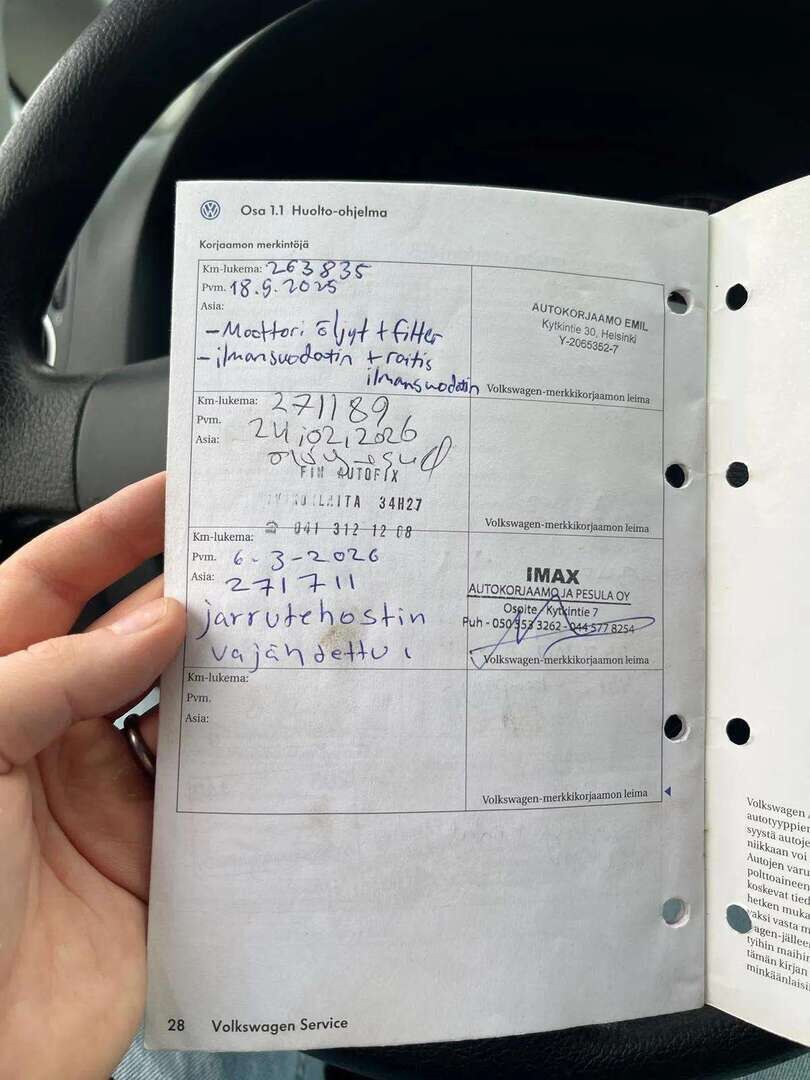 Osa 1.1 Huolto-ohjelma
Korjaamon merkintöjä
Km-lukema: 263835
Pvm. 18.9.2025
Asia:
-Moottori öljyt + filtter
-ilmansuodatin + raitis
ilmansuodatin
AUTOKORJAAMO EMIL
Kytkintie 30, Helsinki
Y-2065352-7
Volkswagen-merkkikorjaamon leima
Km-lukema: 271189
Pvm. 24.02.2026
Asia:
FIN AUTOFIX
34H27
☎ 041 312 12 68
Volkswagen-merkkikorjaamon leima
Km-lukema:
Pvm. 6-3-2026
Asia: 271711
jarrutehostin
vajähdettu
IMAX
AUTOKORJAAMO JA PESULA OY
Osoite / Kytkintie 7
Puh - 050 553 3262 - 044 577 8254
Volkswagen-merkkikorjaamon leima
Km-lukema:
Pvm.
Asia:
Volkswagen-merkkikorjaamon leima
28 Volkswagen Service
Volkswagen
autotyyppien
syystä autoje
niikkaan voi
Autojen varu
polttoaineen
koskevat tied
hetken muka
vaksi vasta m
agen-jälleen
tyihin maihin
tämän kirjan
minkäänlaisi